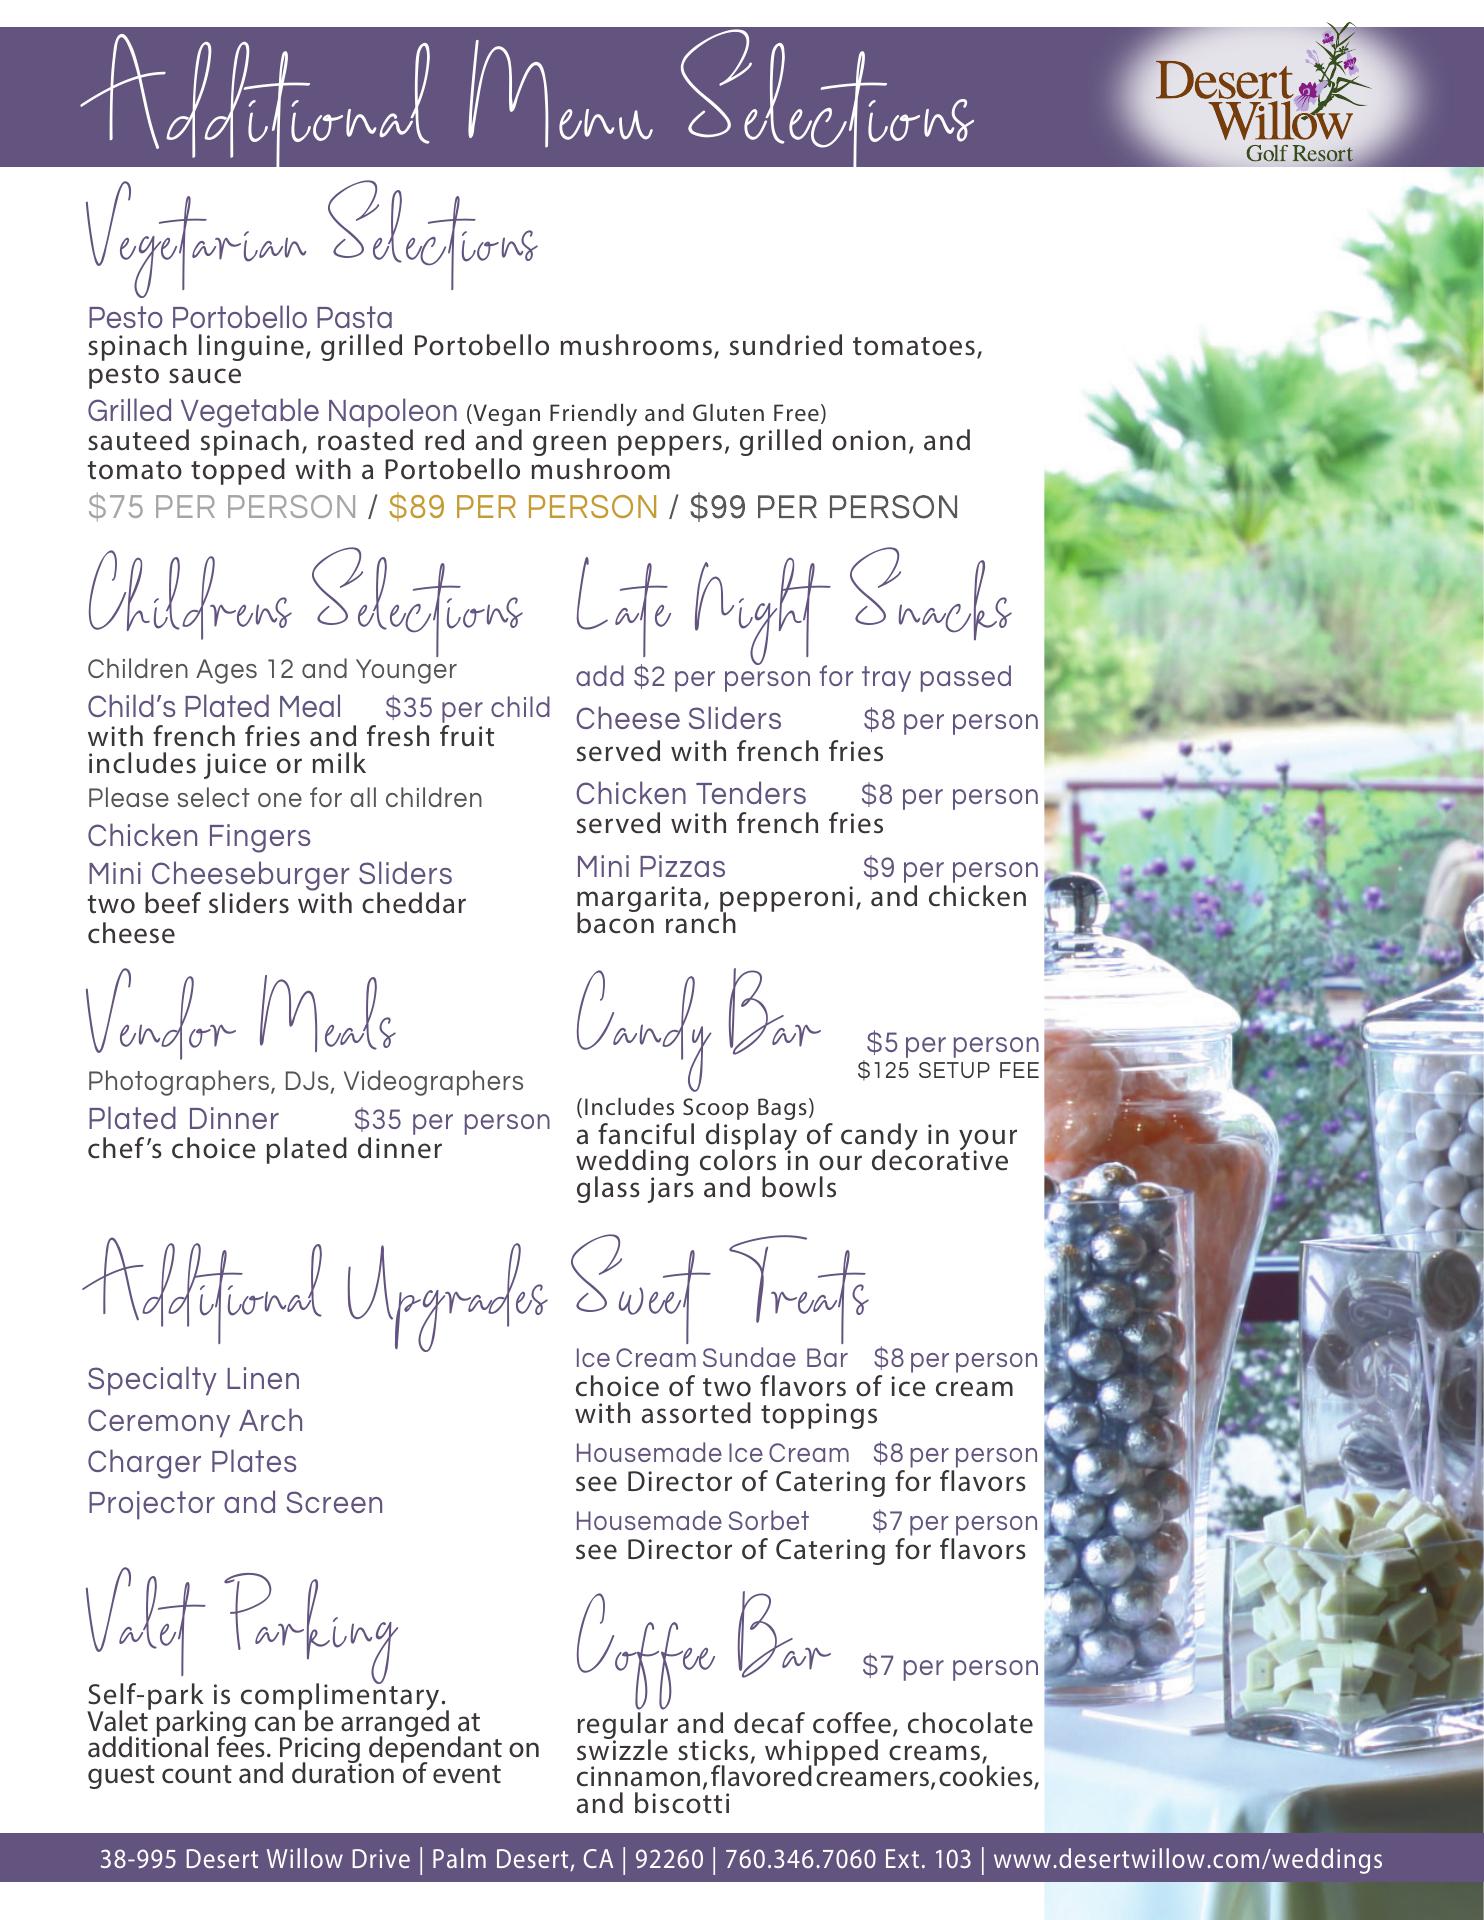 Additional Menu Selections
Desert
Willow
Golf Resort
Vegetarian Selections
Pesto Portobello Pasta
spinach linguine, grilled Portobello mushrooms, sundried tomatoes,
pesto sauce
Grilled Vegetable Napoleon (Vegan Friendly and Gluten Free)
sauteed spinach, roasted red and green peppers, grilled onion, and
tomato topped with a Portobello mushroom
$75 PER PERSON / $89 PER PERSON / $99 PER PERSON
Childrens Selections
Children Ages 12 and Younger
Child's Plated Meal $35 per child
with french fries and fresh fruit
includes juice or milk
Please select one for all children
Chicken Fingers
Mini Cheeseburger Sliders
two beef sliders with cheddar
cheese
Late Night Snacks
add $2 per person for tray passed
Cheese Sliders $8 per person
served with french fries
Chicken Tenders $8 per person
served with french fries
Mini Pizzas $9 per person
margarita, pepperoni, and chicken
bacon ranch
Vendor Meals
Photographers, DJs, Videographers
Plated Dinner $35 per person
chef's choice plated dinner
Candy Bar $5 per person
$125 SETUP FEE
(Includes Scoop Bags)
a fanciful display of candy in your
wedding colors in our decorative
glass jars and bowls
Additional Upgrades
Specialty Linen
Ceremony Arch
Charger Plates
Projector and Screen
Sweet Treats
Ice Cream Sundae Bar $8 per person
choice of two flavors of ice cream
with assorted toppings
Housemade Ice Cream $8 per person
see Director of Catering for flavors
Housemade Sorbet $7 per person
see Director of Catering for flavors
Valet Parking
Self-park is complimentary.
Valet parking can be arranged at
additional fees. Pricing dependant on
guest count and duration of event
Coffee Bar $7 per person
regular and decaf coffee, chocolate
swizzle sticks, whipped creams,
cinnamon, flavored creamers, cookies,
and biscotti
38-995 Desert Willow Drive | Palm Desert, CA | 92260 | 760.346.7060 Ext. 103 | www.desertwillow.com/weddings